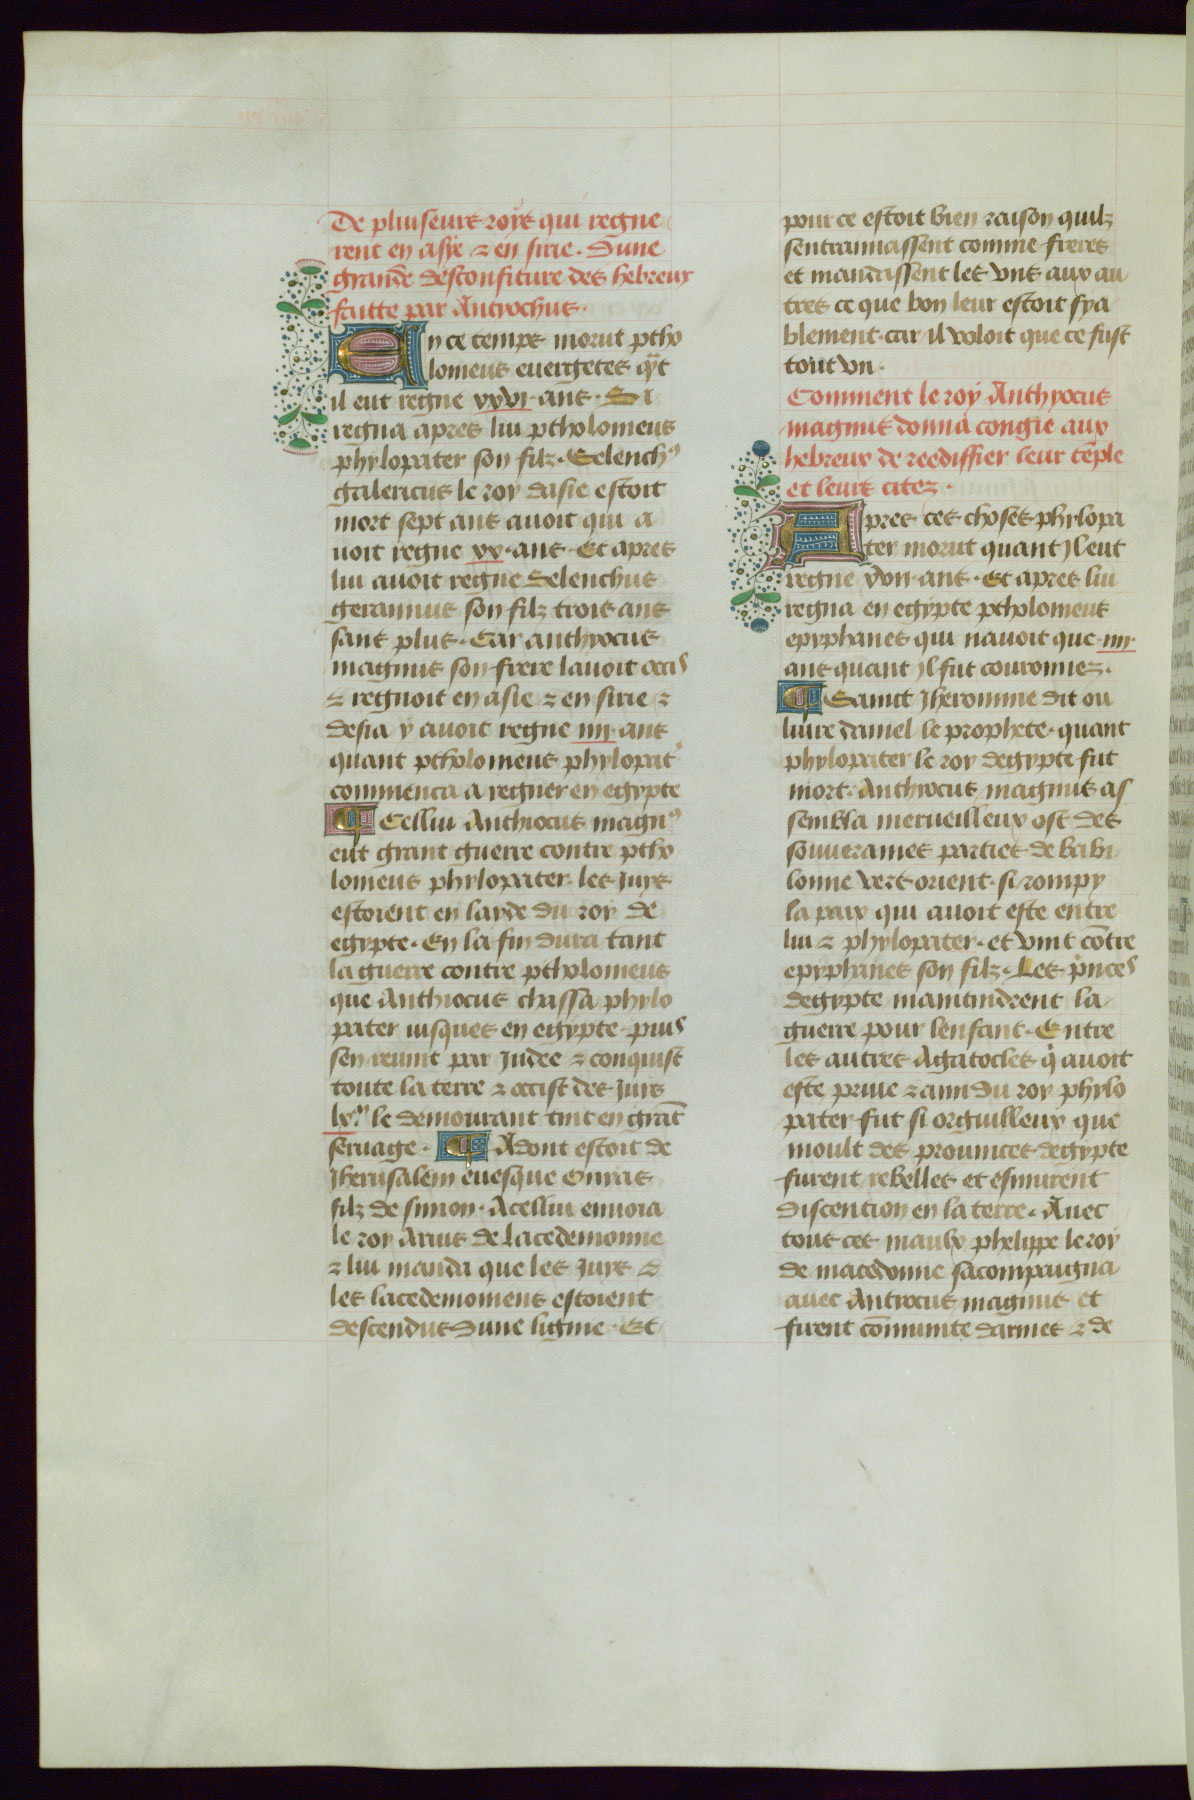 De pluiseurs roys qui regne
rent en asye ⁊ en sirie. Dune
grande desconfiture des hebreux
faitte par Antiochus.
En ce temps morut ptho
lomeus euergetes q̃t
il eut regne xxvi ans. Si
regna apres lui ptholomeus
phylopater son filz. Selench⁹
galericus le roy dasie estoit
mort sept ans auoit qui a
uoit regne xx. ans. Et apres
lui auoit regne Selenchus
gerannus son filz trois ans
sans plus. Car anthyocus
magnus son frere lauoit occis
⁊ regnoit en asie ⁊ en sirie ⁊
desia y auoit regne iiii. ans
quant ptholomeus phylopat̾
commenca a regner en egypte
Cellui Anthiocus magn⁹
eut grant guerre contre ptho
lomeus phylopater. les juys
estoient en layde du roy de
egypte. En la fin dura tant
la guerre contre ptholomeus
que Anthiocus chassa phylo
pater iusques en egypte. puis
sen reuint par judee ⁊ conquist
toute la terre ⁊ occist des juis
lx.ᵐ le demourant tint en grãt
seruage. Adont estoit de
Jherusalem euesque Onias
filz de simon. Acellui enuoia
le roy Arius de lacedemonne
⁊ lui manda que les juys ⁊
les lacedemoniens estoient
descendus dune lignie. Et
pour ce estoit bien raison quilz
sentramassent comme freres
et mandassent les vns aux au
tres ce que bon leur estoit fya
blement. car il voloit que ce fust
tout vn.
Comment le roy Anthyocus
magnus donna congie aux
hebreux de reediffier leur tẽple
et leurs citez.
Apres ces choses phylopa
ter morut quant jl eut
regne xvii. ans. Et apres lui
regna en egypte ptholomeus
epyphanes qui nauoit que iiii.
ans quant jl fut couronnez.
Saint Jheromme dit ou
liure daniel le prophete. quant
phylopater le roy degypte fut
mort. Anthiocus magnus as
sembla merueilleux ost des
souueraines parties de babi
lonne vers orient. si rompy
la paix qui auoit este entre
lui ⁊ phylopater. et vint cõtre
epyphanes son filz. Les p̾nces
degypte maintindrent la
guerre pour lenfant. Entre
les autres Agatocles q̾ auoit
este priue ⁊ ami du roy phylo
pater fut si orguilleux que
moult des prouinces degypte
furent rebelles et esmurent
discention en la terre. Auec
tous ces maulx phelippe le roy
de macedonne sacompaigna
auec Antiocus magnus et
firent cõmunite darmes ⁊ de